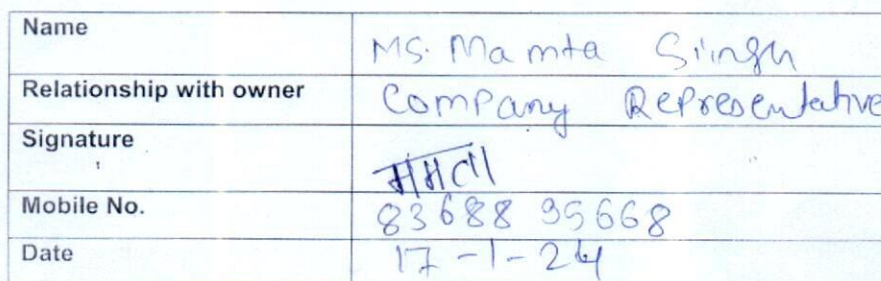 Name MS. Mamta Singh
Relationship with owner Company Representative
Signature ममता
Mobile No. 83688 95668
Date 17-1-24